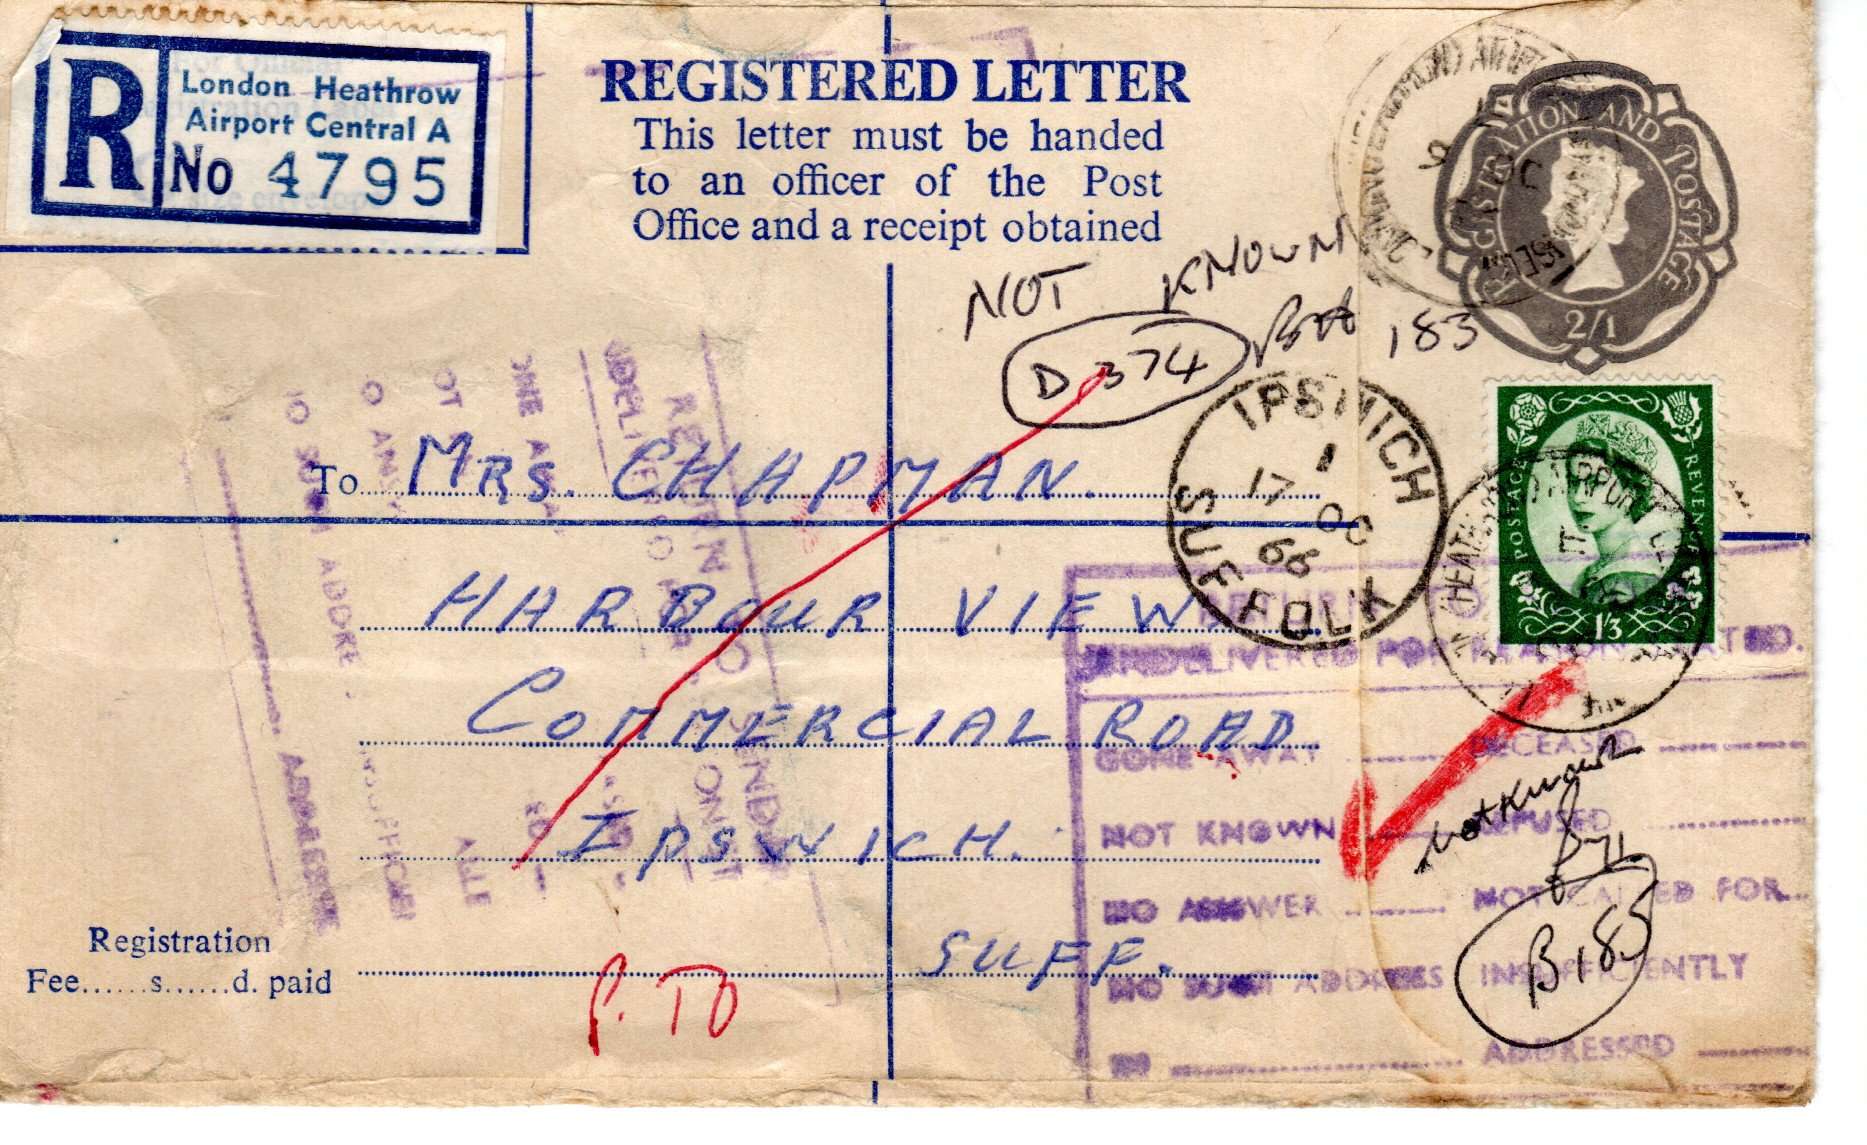 R
London Heathrow
Airport Central A
No 4795
REGISTERED LETTER
This letter must be handed
to an officer of the Post
Office and a receipt obtained
REGISTRATION AND POSTAGE
2/1
NOT KNOWN
D 374
183
IPSWICH
1
17 OC
66
SUFFOLK
POSTAGE REVENUE
1/3
To Mrs. CHAPMAN.
HARBOUR VIEW
COMMERCIAL ROAD
IPSWICH.
SUFF.
Registration
Fee......s......d. paid
P.TO
RETURN TO
UNDELIVERED FOR REASON STATED.
GONE AWAY DECEASED
NOT KNOWN REFUSED
NO ANSWER NOT CALLED FOR
NO SUCH ADDRESS INSUFFICIENTLY
IN ADDRESSED
Not Known
B 183
RETURN TO SENDER